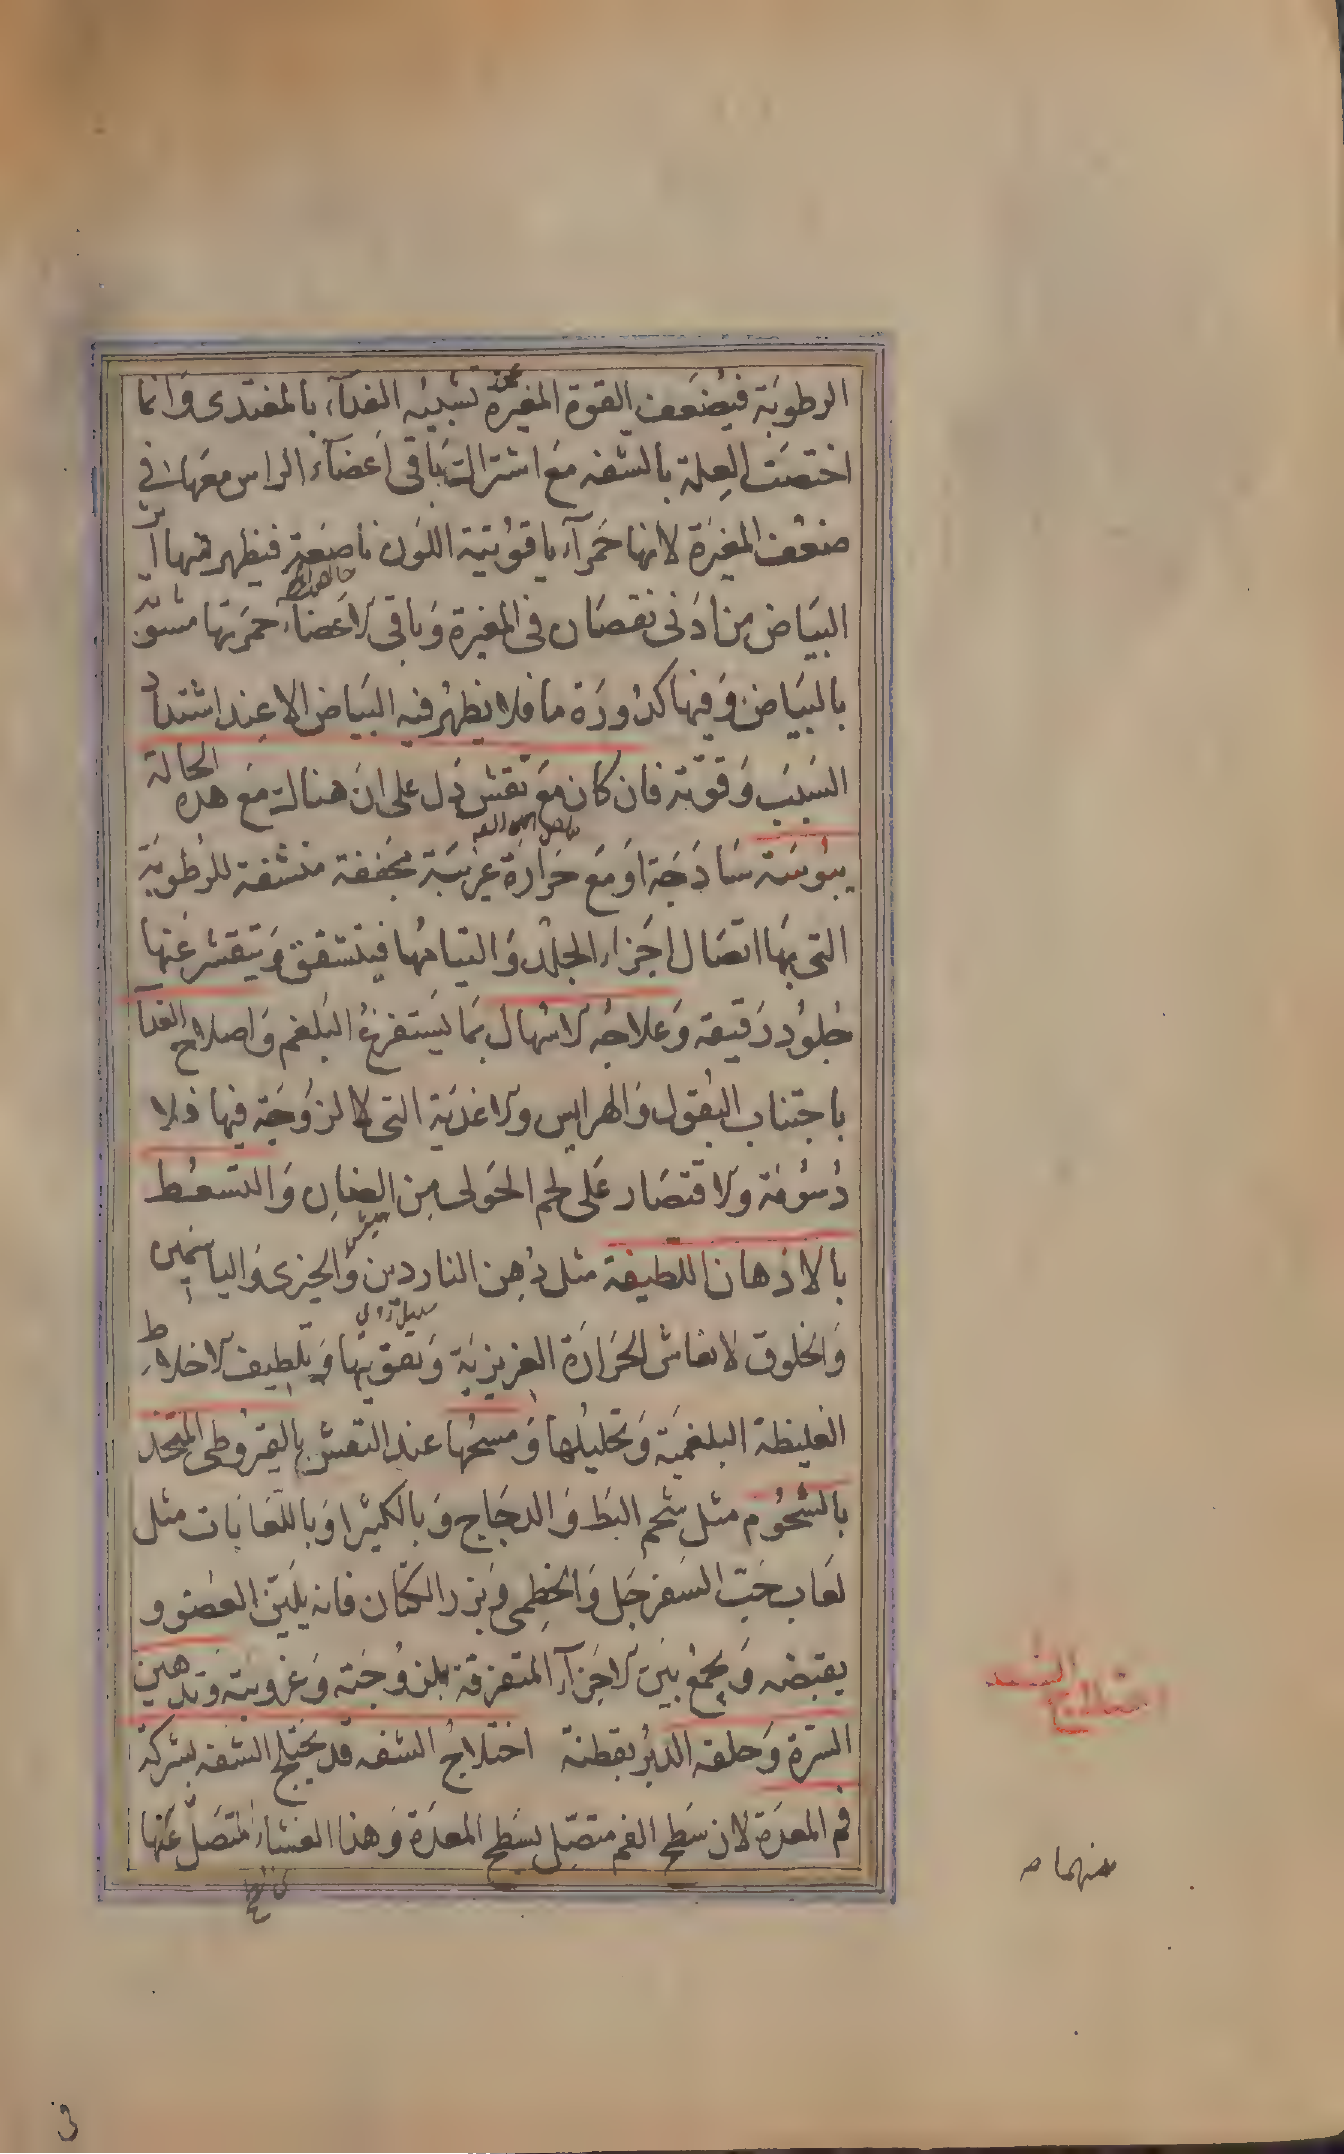 الرطوبة فيضعف القوة المغيرة عن تشبيه الغذآء بالمغتذى وانما
اختصت العلة بالشفه مع اشتراك باقى اعضآء الراس معها فى
ضعف المغيرة لانها حمرآء ياقوتية اللون ناصعة فيظهر فيها اثر
البياض من ادنى نقصان فى المغيرة وباقى الاعضاء حمرتها مشوبة
بالبياض وفيها كدورة ما فلا يظهر فيه البياض الا عند اشتداد
السبب وقوته فان كان مع تقشر دل على ان هناك مع هذه الحالة
يبوسة ساذجة او مع حرارة غريبة مجففة منشفة للرطوبة
التى بها اتصال اجزاء الجلد والتيامها فيتشقق ويتقشر عنها
جلود رقيقة وعلاجه الاسهال بما يستفرغ البلغم واصلاح الغذآ
باجتناب البقول والهرايس والاغذية التى لا لزوجة فيها ولا
دسومة والاقتصار على لحم الحولى من الضان والتسعط
بالادهان اللطيفة مثل دهن الناردين والخيرى والياسمين
والخلوق لانعاش الحرارة الغريزية وتقويتها وتلطيف الاخلاط
الغليظة البلغمية وتحليلها ومسحها عند التقشر بالقيروطى المتخذ
بالشحوم مثل شحم البط والدجاج وبالكثيرا وباللعابات مثل
لعاب حب السفرجل والخطمى وبزر الكتان فانه يلين العضو و
يقبضه ويجمع بين الاجزآء المتفرقة بلزوجته وغرويته وتدهين
السرة وحلقه الدبر بقطنة اختلاج الشفه قد يختلج الشفه بشركة
فم المعدة لان سطح الفم متصل بسطح المعدة وهذا الغشاء المتصل عنها
اختلاج الشفه
منهما صه
3